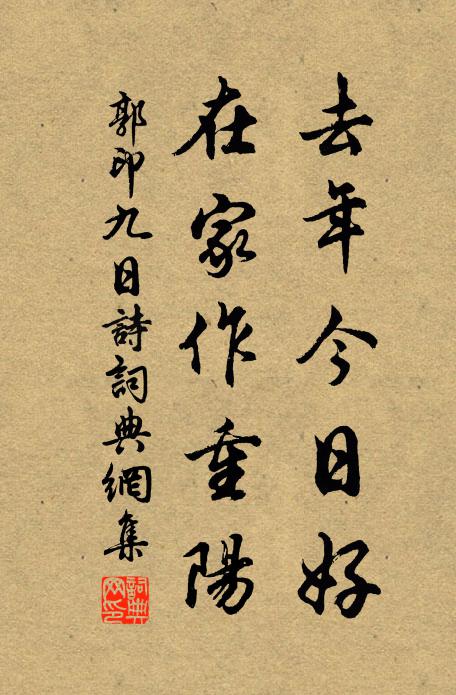 去年今日好
在家作重陽
郭印九日詩詞典網集
詞典網印